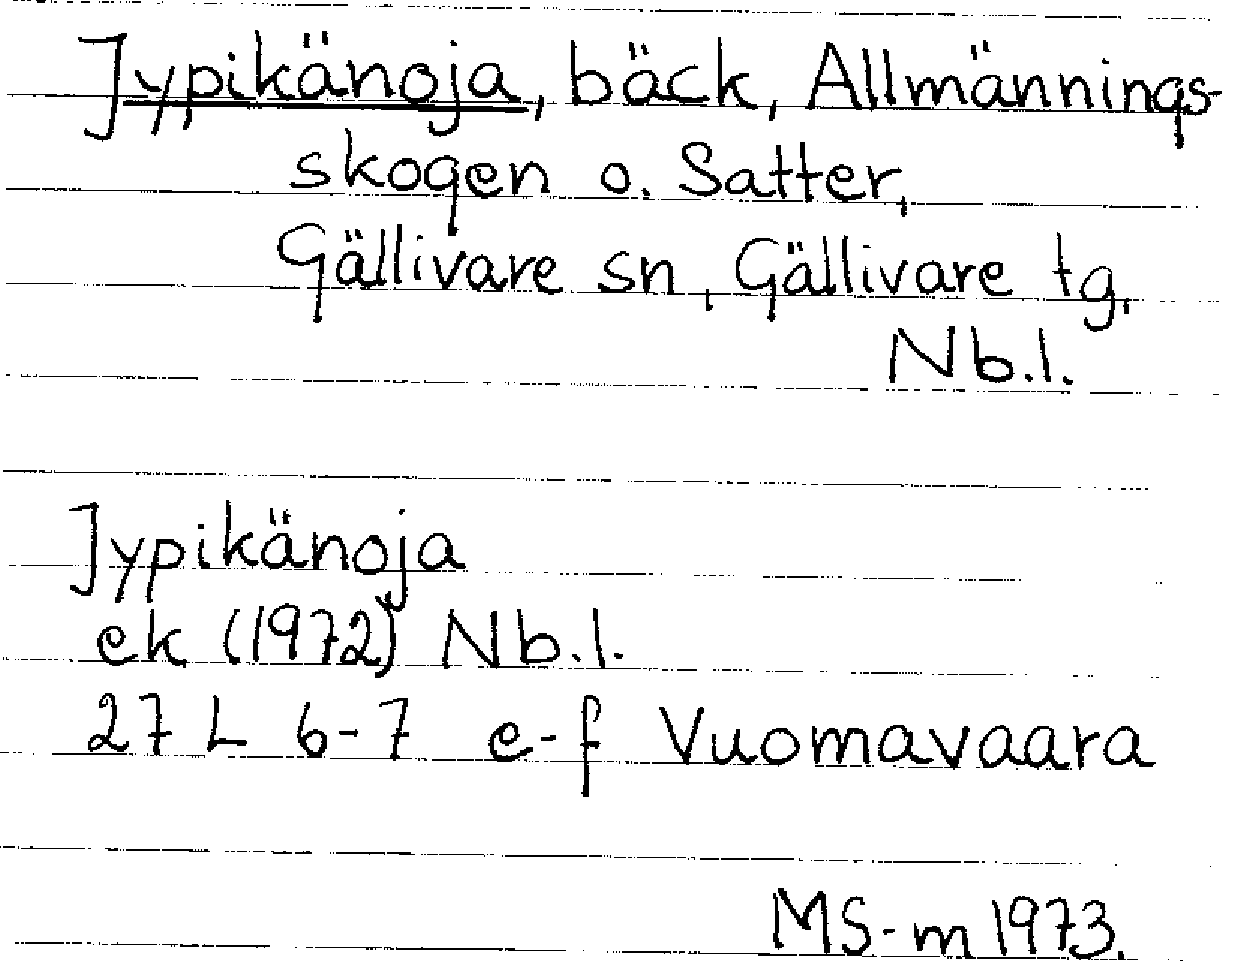 Jypikänoja, bäck, Allmännings-
skogen o. Satter,
Gällivare sn, Gällivare tg,
Nb.l.
Jypikänoja
ek (1972) Nb.l.
27 L 6-7 e-f Vuomavaara
MS-m 1973.